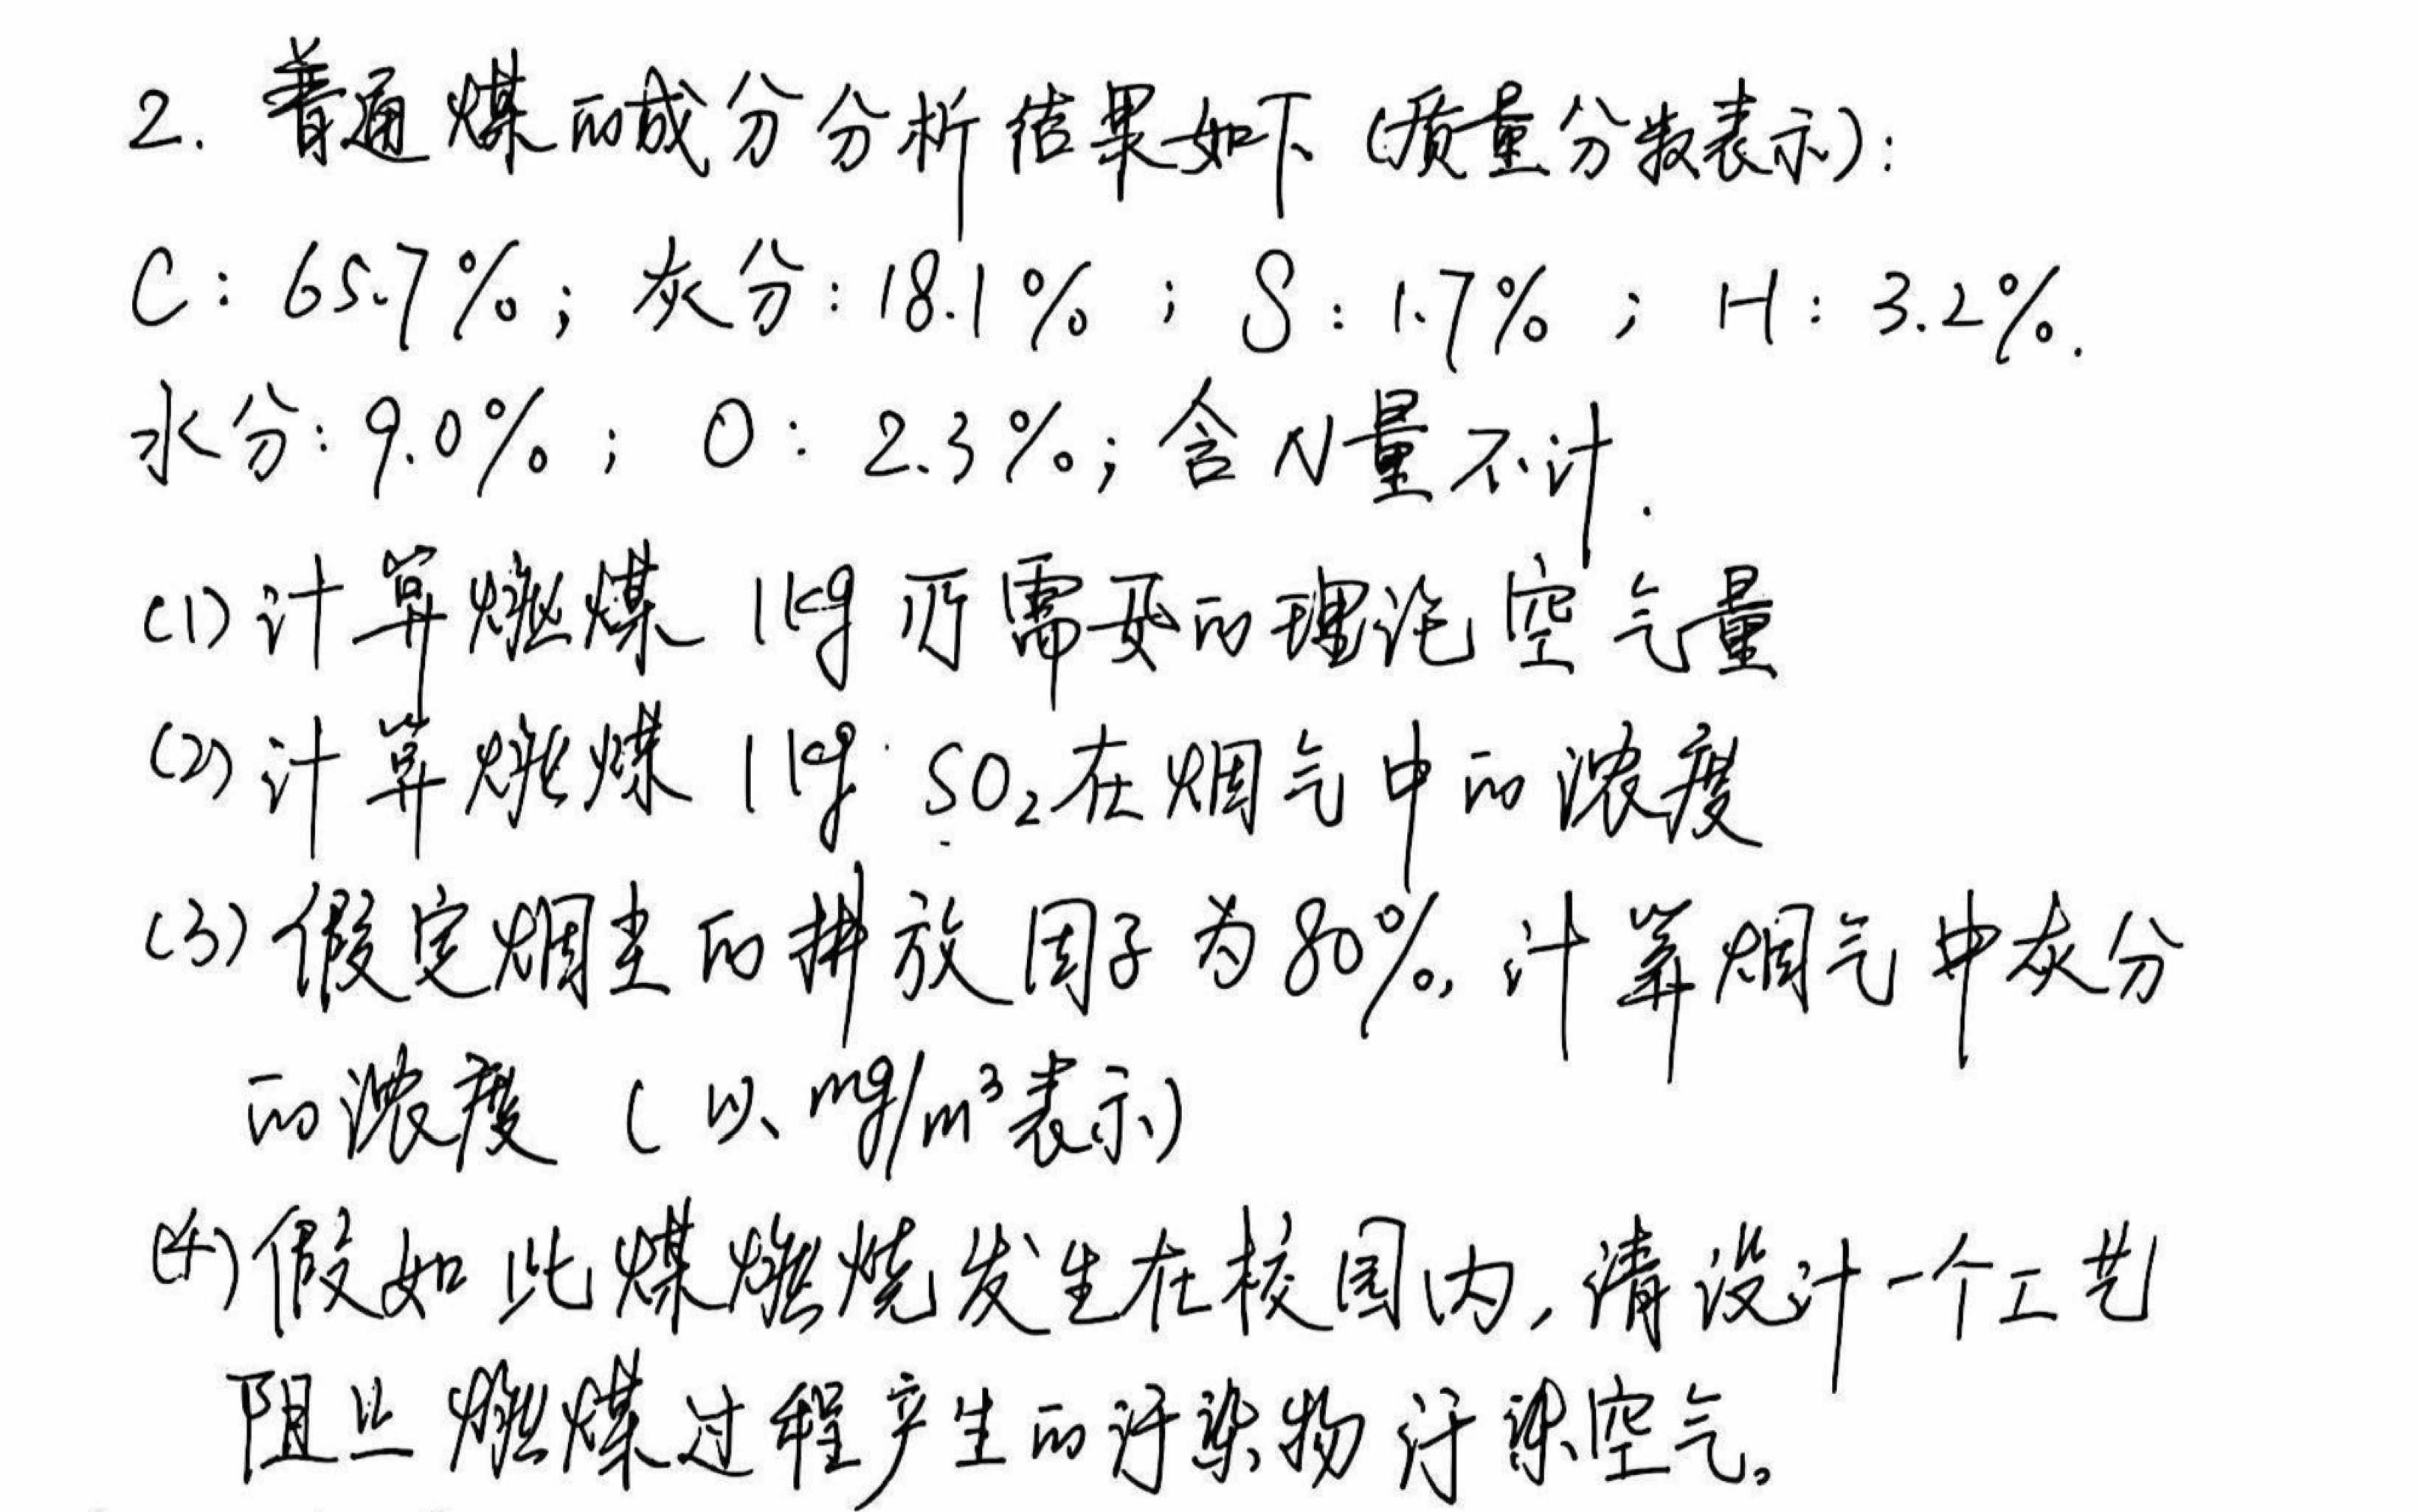 2. 普通煤的成分分析结果如下(质量分数表示):
C: 65.7%; 灰分: 18.1%; S: 1.7%; H: 3.2%.
水分: 9.0%; O: 2.3%; 含N量不计.
(1) 计算燃煤 1kg 所需要的理论空气量
(2) 计算燃煤 1kg SO₂在烟气中的浓度
(3) 假定烟尘的排放因子为80%, 计算烟气中灰分
的浓度 (以 mg/m³表示)
(4) 假如此煤燃烧发生在校园内, 请设计一个工艺
阻止燃煤过程产生的污染物污染空气。